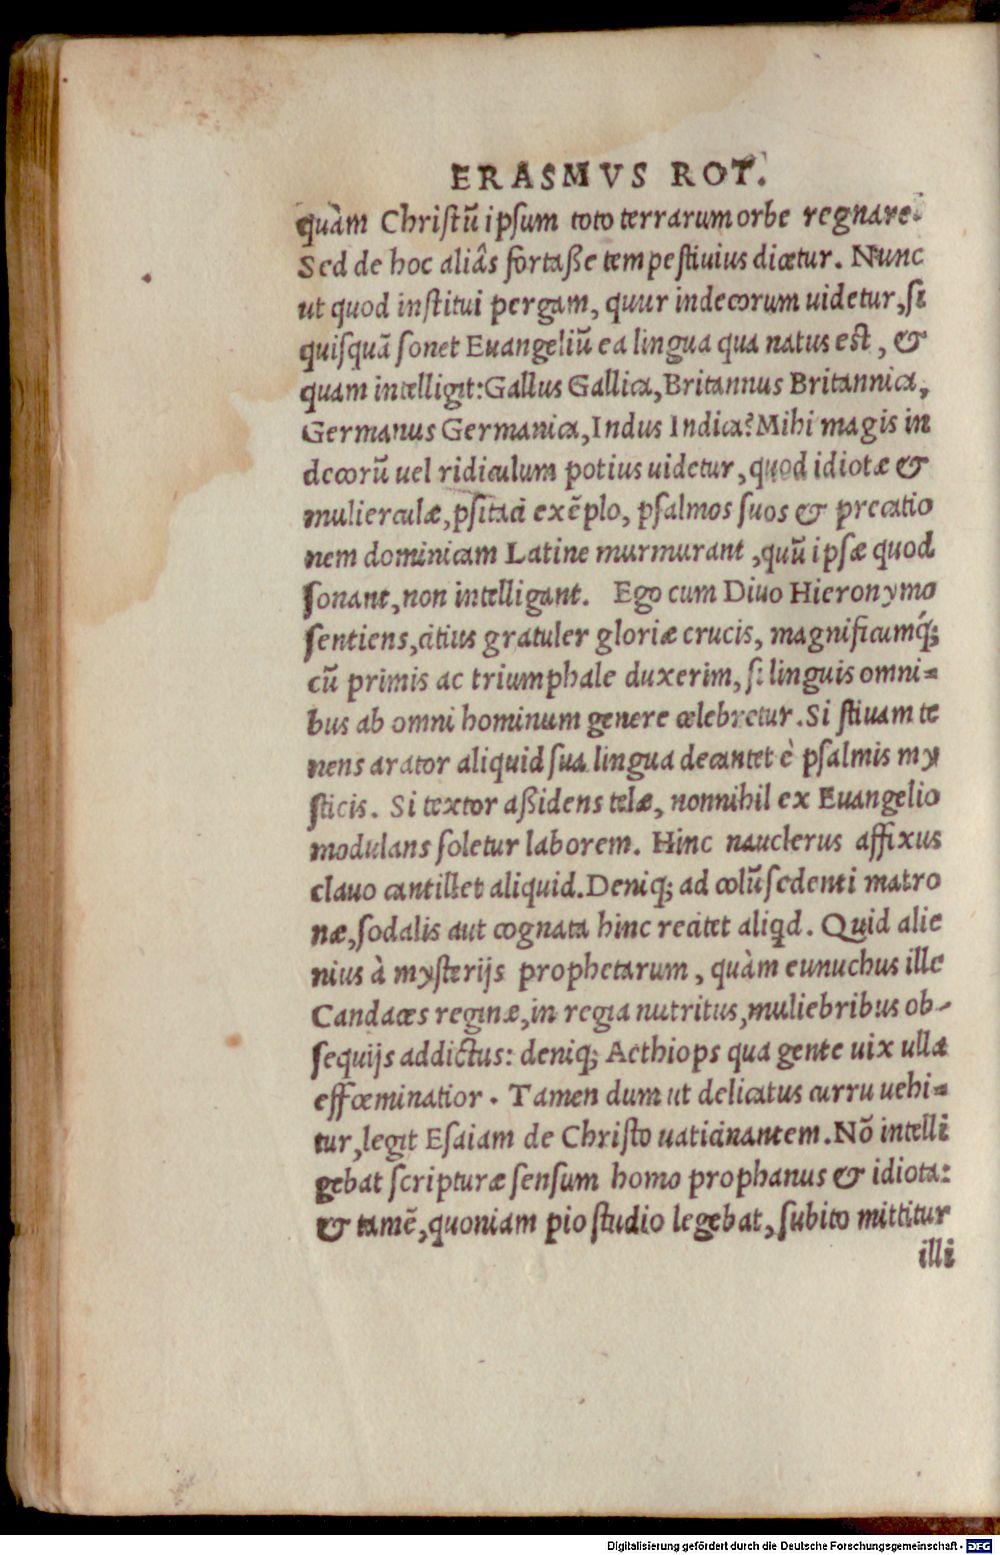 ERASMVS ROT.
quàm Christũ ipsum toto terrarum orbe regnare.
Sed de hoc aliâs fortasse tempestiuius dicetur. Nunc
ut quod institui pergam, quur indecorum uidetur, si
quisquã sonet Euangeliũ ea lingua qua natus est, &
quam intelligit: Gallus Gallica, Britannus Britannica,
Germanus Germanica, Indus Indica? Mihi magis in
decorũ uel ridiculum potius uidetur, quod idiotæ &
mulierculæ, psitaci exẽplo, psalmos suos & precatio
nem dominicam Latine murmurant, quũ ipsæ quod
sonant, non intelligant. Ego cum Diuo Hieronymo
sentiens, citius gratuler gloriæ crucis, magnificumq́;
cũ primis ac triumphale duxerim, si linguis omni=
bus ab omni hominum genere celebretur. Si stiuam te
nens arator aliquid sua lingua decantet è psalmis my
sticis. Si textor assidens telæ, nonnihil ex Euangelio
modulans soletur laborem. Hinc nauclerus affixus
clauo cantillet aliquid. Deniq; ad colũ sedenti matro
næ, sodalis aut cognata hinc recitet aliqd. Quid alie
nius à mysterijs prophetarum, quàm eunuchus ille
Candaces reginæ, in regia nutritus, muliebribus ob-
sequijs addictus: deniq; Aethiops qua gente uix ulla
effœminatior. Tamen dum ut delicatus curru uehi=
tur, legit Esaiam de Christo uaticinantem. Nõ intelli
gebat scripturæ sensum homo prophanus & idiota:
& tamẽ, quoniam pio studio legebat, subito mittitur
illi
Digitalisierung gefördert durch die Deutsche Forschungsgemeinschaft - DFG